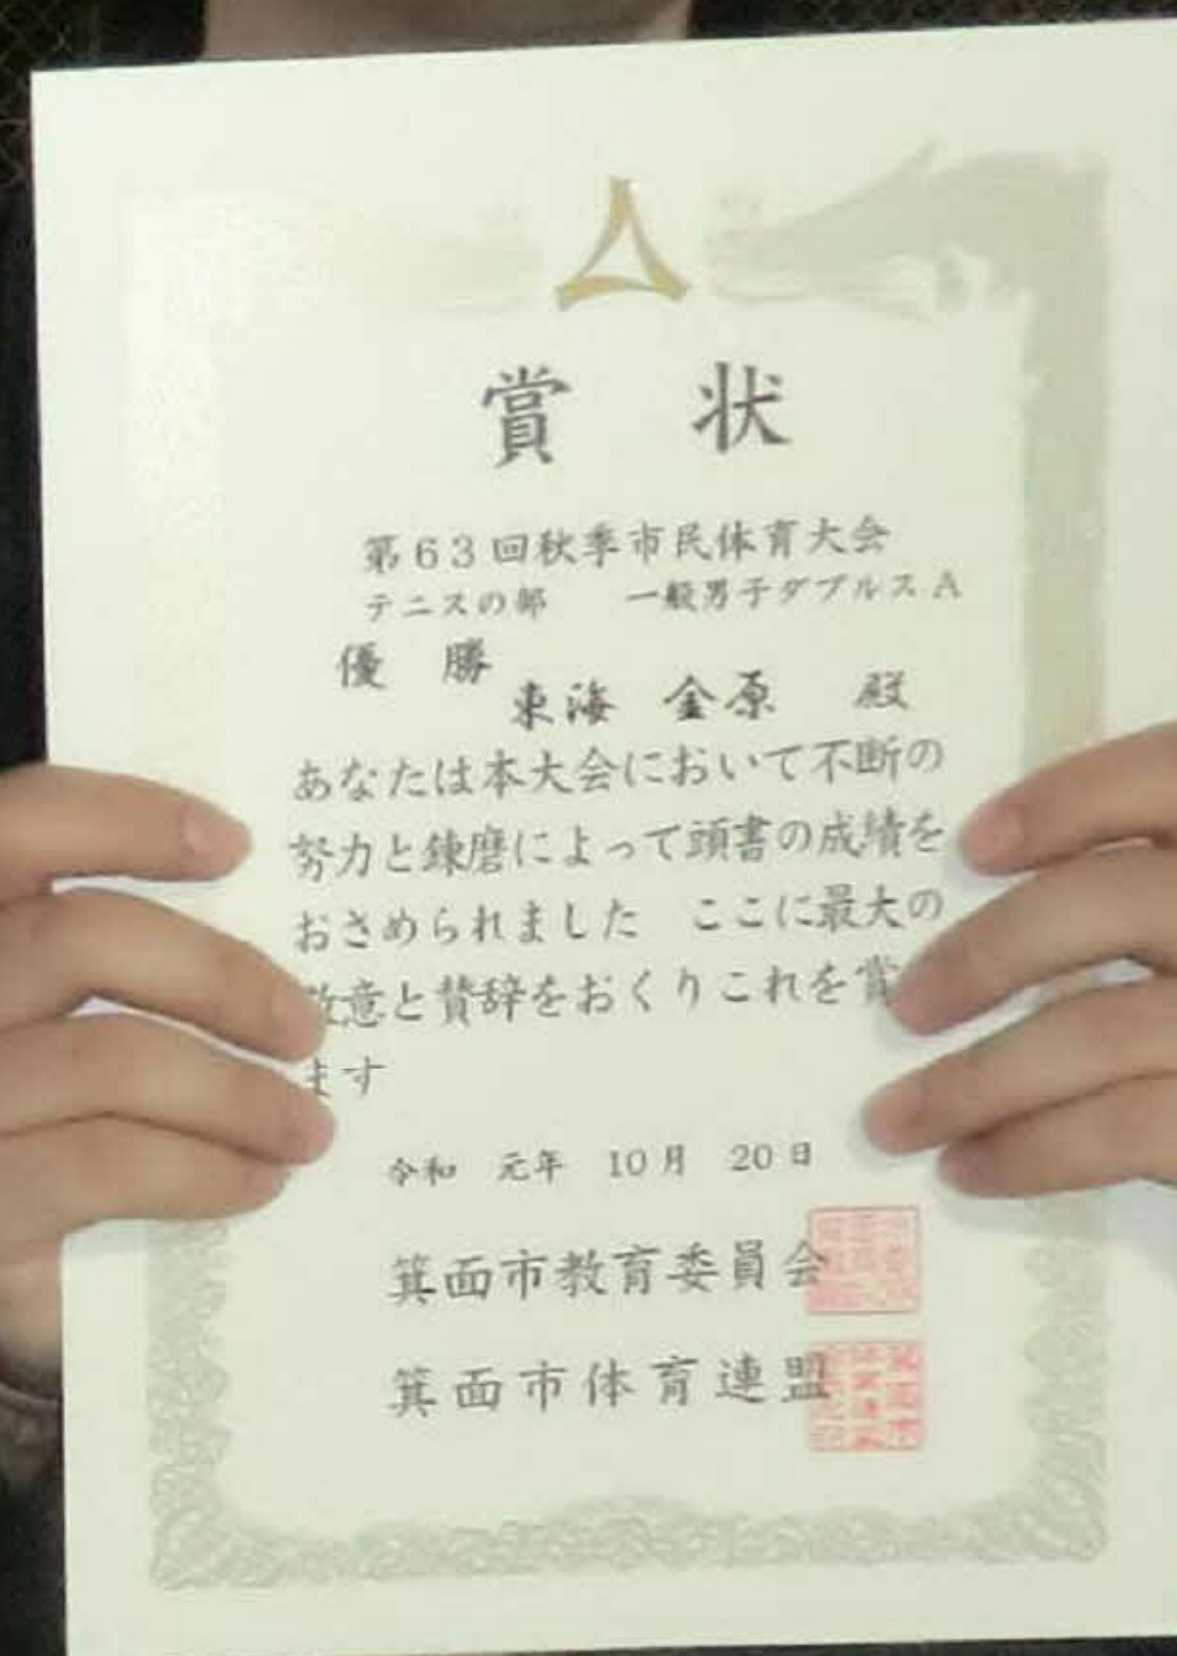 賞 状
第63回秋季市民体育大会
テニスの部 一般男子ダブルスA
優 勝
東海 金原 殿
あなたは本大会において不断の
努力と錬磨によって頭書の成績を
おさめられました ここに最大の
意と賛辞をおくりこれを賞
ます
令和 元年 10月 20日
箕面市教育委員会
箕面市体育連盟